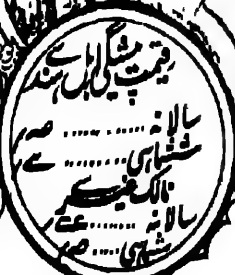 قیمت پیشگی اہل ہند سے
سالانہ ........ صہ
ششماہی ........ سے
ممالک غیر سے
سالانہ ........ عہ
ششماہی .... صہ